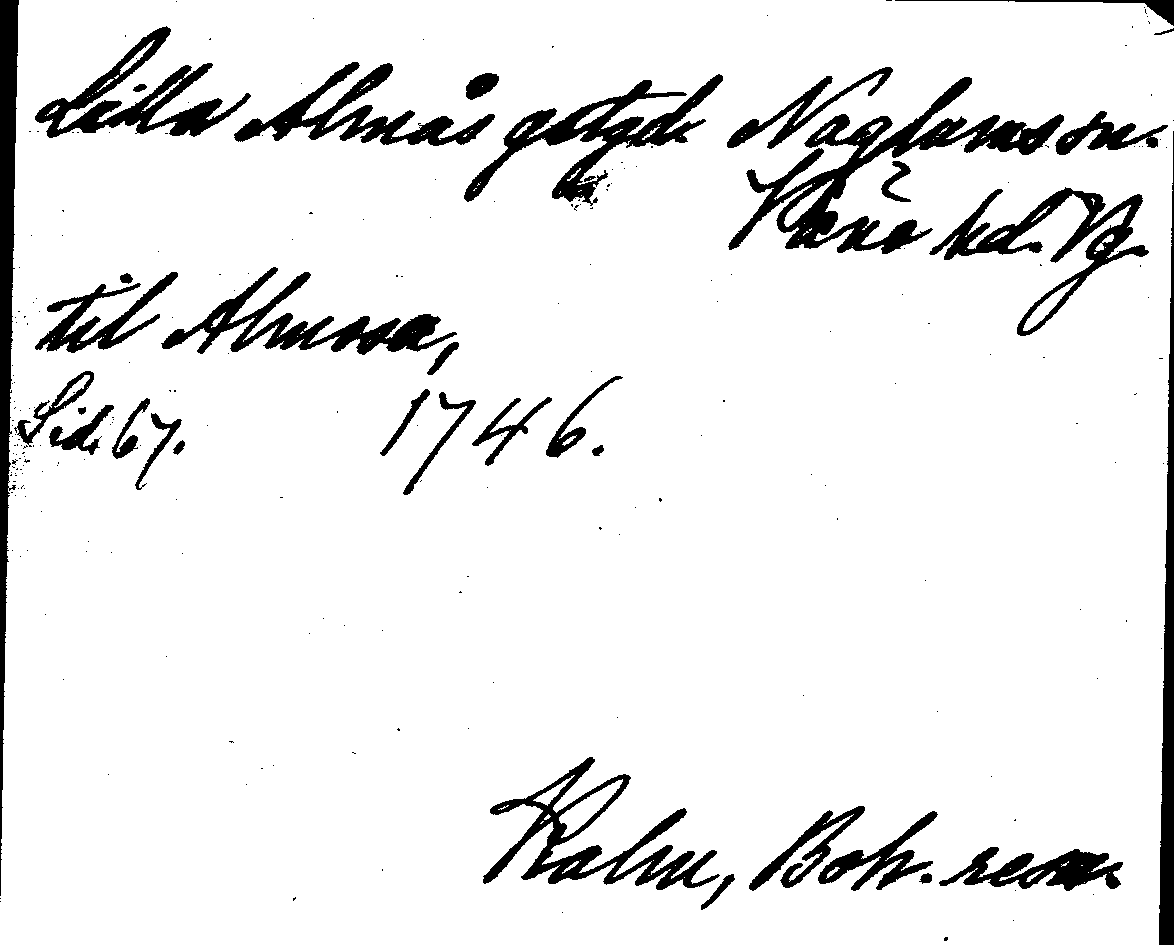 Lilla Almås gstgd. Naglums sn.
Väne hd. Vg.
til Almosa,
Sid. 67. 1746.
Kalm, Boh. resa.